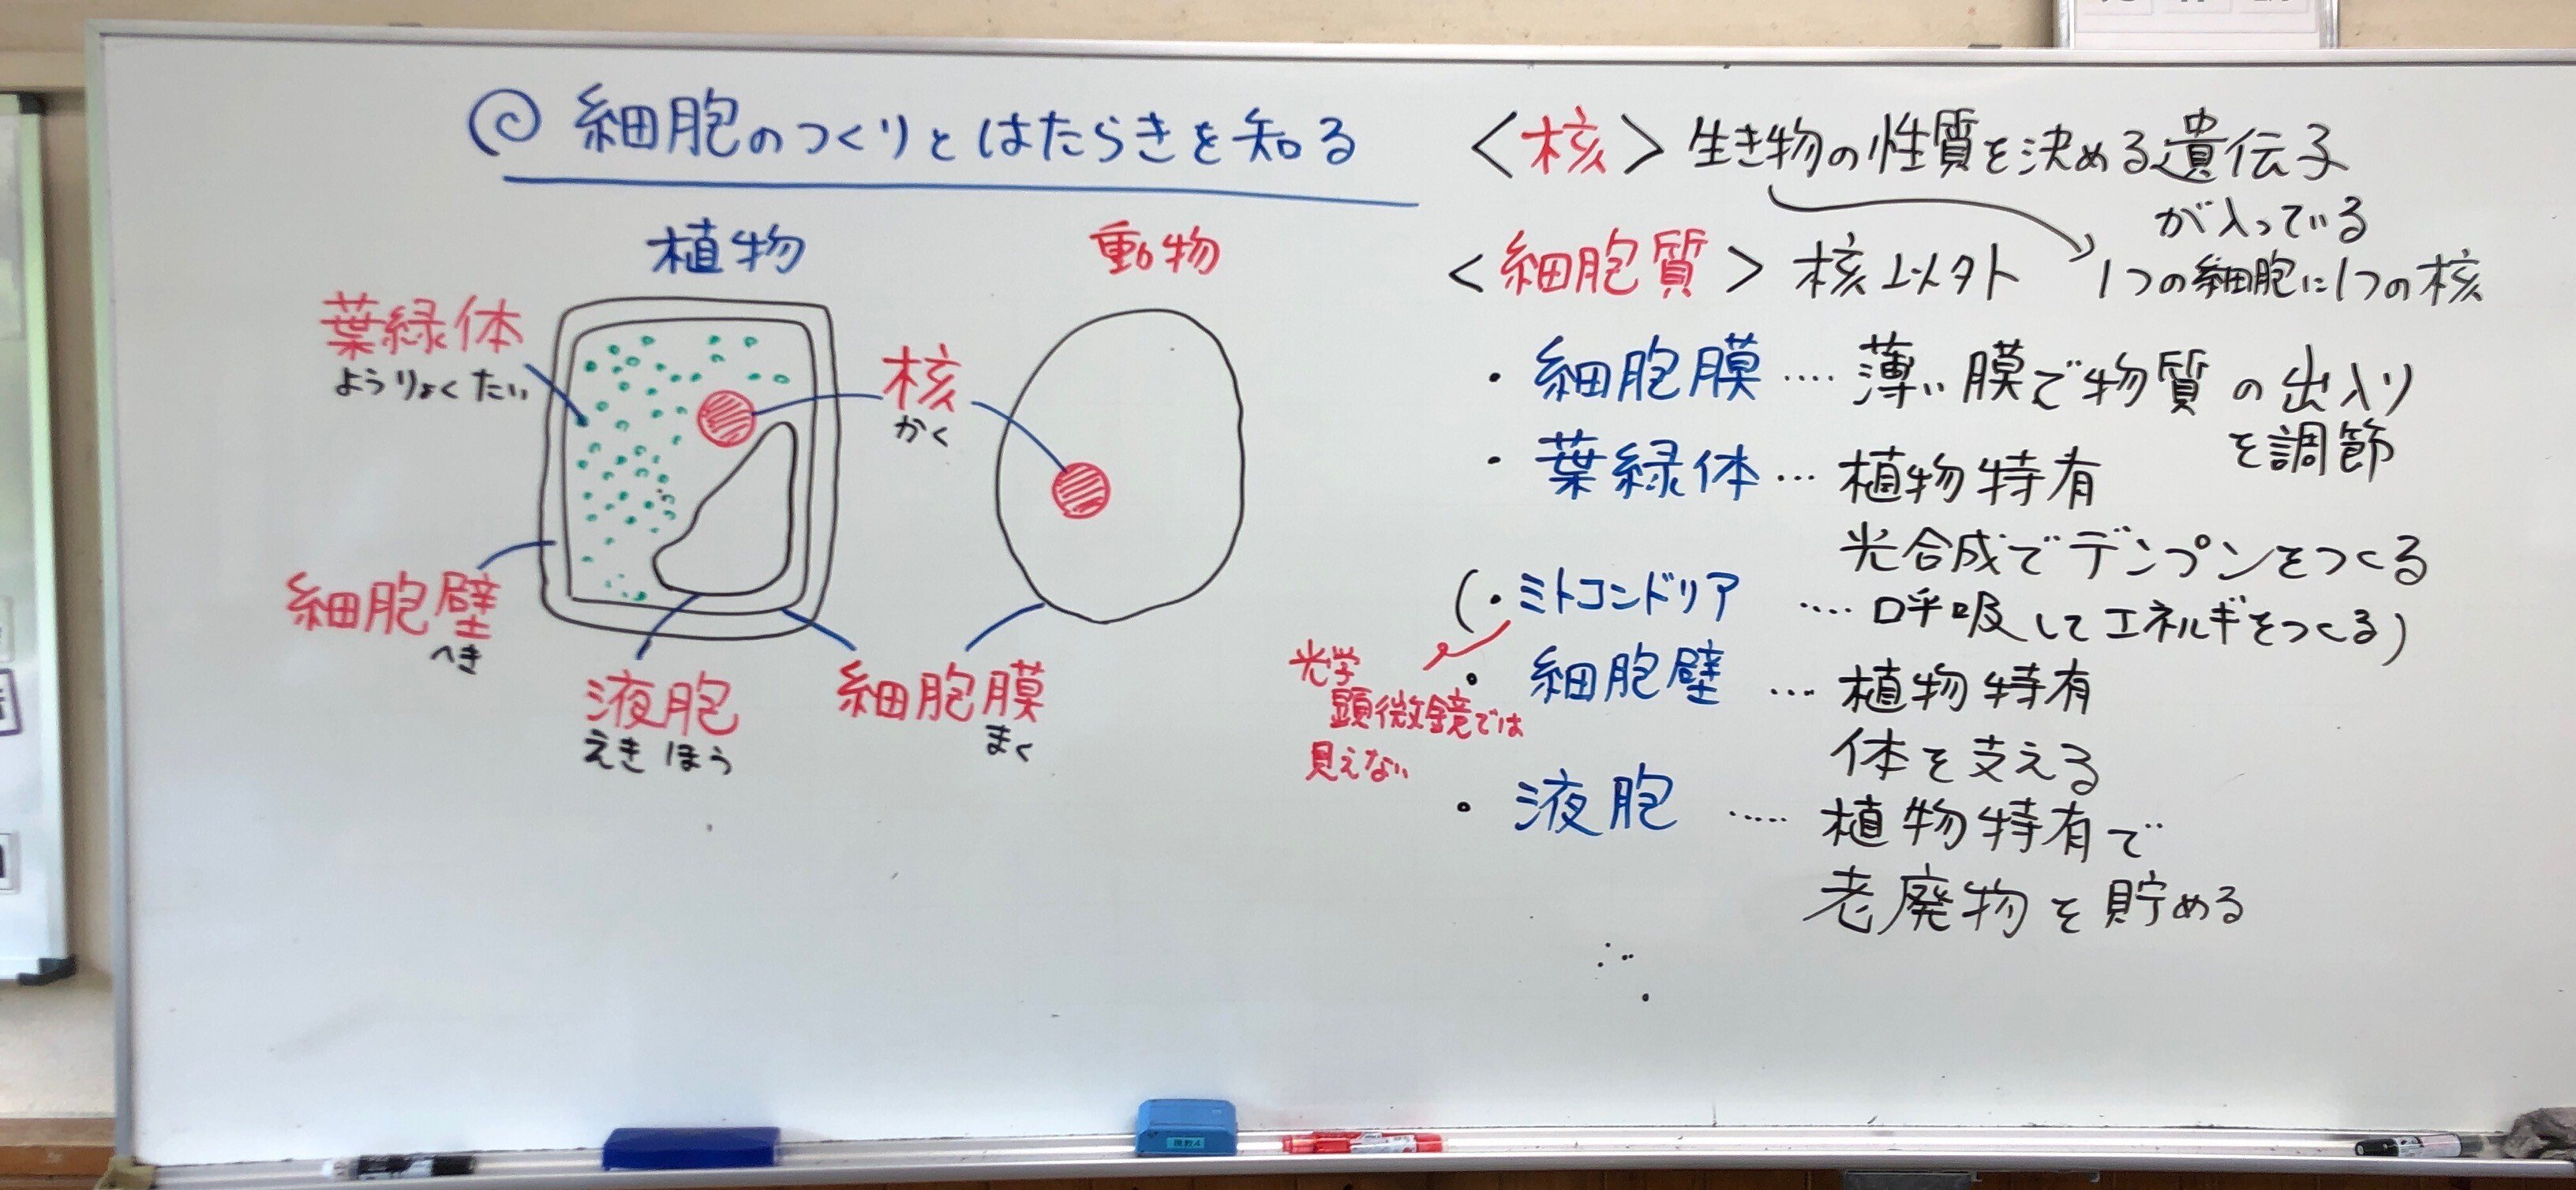 ◎ 細胞のつくりとはたらきを知る
植物
動物
葉緑体
ようりょくたい
核
かく
細胞壁
へき
液胞
えきほう
細胞膜
まく
<核> 生き物の性質を決める遺伝子
が入っている
1つの細胞に1つの核
<細胞質> 核以外
・細胞膜 …. 薄い膜で物質の出入り
を調節
・葉緑体 … 植物特有
光合成でデンプンをつくる
(・ミトコンドリア …. 呼吸してエネルギをつくる)
光学
顕微鏡では
見えない
・細胞壁 … 植物特有
体を支える
・液胞 ….. 植物特有で
老廃物を貯める